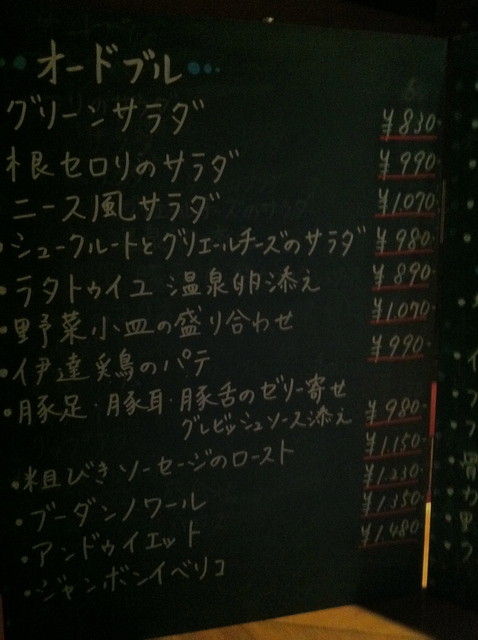 オードブル
グリーンサラダ ¥830
根セロリのサラダ ¥990
ニース風サラダ ¥1070
・シュークルートとグリエールチーズのサラダ ¥980
・ラタトゥイユ 温泉卵添え ¥890
・野菜小皿の盛り合わせ ¥1070
・伊達鶏のパテ ¥990
・豚足・豚耳・豚舌のゼリー寄せ
グレビッシュソース添え ¥980
・粗びきソーセージのロースト ¥1.150
・ブーダンノワール ¥1.230
・アンドゥイエット ¥1.350
・ジャンボンイベリコ ¥1.480